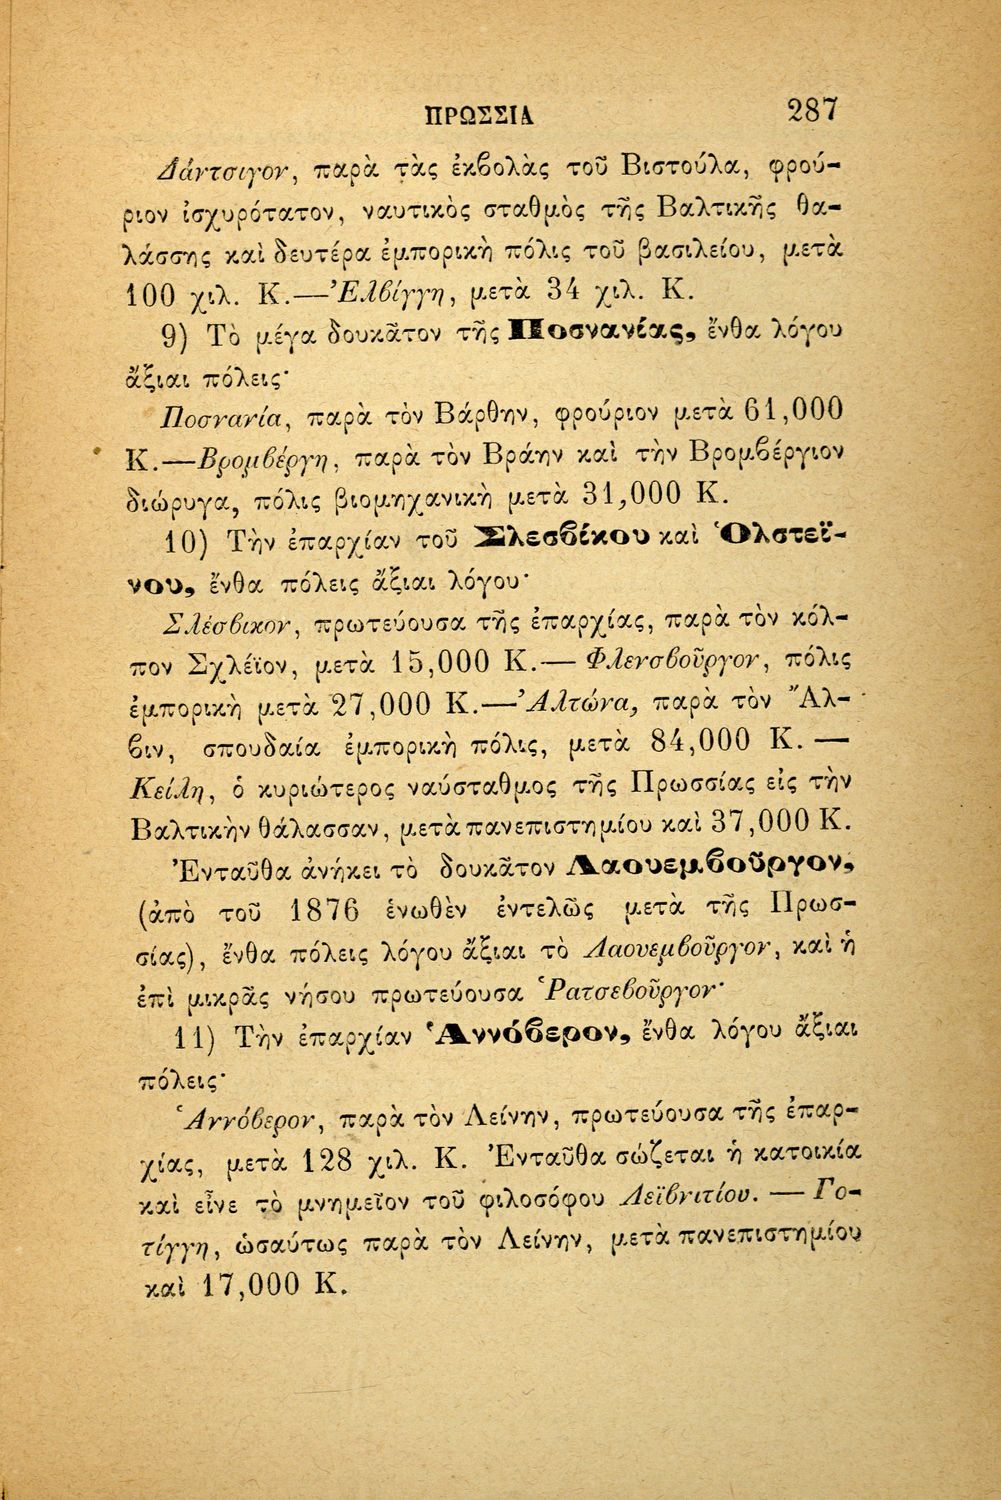 ΠΡΩΣΣΙΑ 287
Δάντσιγον, παρὰ τὰς ἐκϐολὰς τοῦ Βιστούλα, φρού-
ριον ἰσχυρότατον, ναυτικὸς σταθμὸς τῆς Βαλτικῆς θα-
λάσσης καὶ δευτέρα ἐμπορικὴ πόλις τοῦ βασιλείου, μετὰ
100 χιλ. Κ.—Ἐλϐίγγη, μετὰ 34 χιλ. Κ.
9) Τὸ μέγα δουκᾶτον τῆς Ποσνανίας, ἔνθα λόγου
ἄξιαι πόλεις·
Ποσνανία, παρὰ τὸν Βάρθην, φρούριον μετὰ 61,000
Κ.—Βρομϐέργη, παρὰ τὸν Βράην καὶ τὴν Βρομϐέργιον
διώρυγα, πόλις βιομηχανικὴ μετὰ 31,000 Κ.
10) Τὴν ἐπαρχίαν τοῦ Σλεσϐίκου καὶ Ὁλστεϊ-
νου, ἔνθα πόλεις ἄξιαι λόγου·
Σλέσϐικον, πρωτεύουσα τῆς ἐπαρχίας, παρὰ τὸν κόλ-
πον Σχλέϊον, μετὰ 15,000 Κ.— Φλενσϐοῦργον, πόλις
ἐμπορικὴ μετὰ 27,000 Κ.—Ἀλτώνα, παρὰ τὸν Ἄλ-
ϐιν, σπουδαία ἐμπορικὴ πόλις, μετὰ 84,000 Κ. —
Κείλη, ὁ κυριώτερος ναύσταθμος τῆς Πρωσσίας εἰς τὴν
Βαλτικὴν θάλασσαν, μετὰ πανεπιστημίου καὶ 37,000 Κ.
Ἐνταῦθα ἀνήκει τὸ δουκᾶτον Λαουεμϐοῦργον,
(ἀπὸ τοῦ 1876 ἑνωθὲν ἐντελῶς μετὰ τῆς Πρωσ-
σίας), ἔνθα πόλεις λόγου ἄξιαι τὸ Λαουεμϐοῦργον, καὶ ἡ
ἐπὶ μικρᾶς νήσου πρωτεύουσα Ῥατσεϐοῦργον·
11) Τὴν ἐπαρχίαν Ἁννόϐερον, ἔνθα λόγου ἄξιαι
πόλεις·
Ἁννόϐερον, παρὰ τὸν Λείνην, πρωτεύουσα τῆς ἐπαρ-
χίας, μετὰ 128 χιλ. Κ. Ἐνταῦθα σώζεται ἡ κατοικία
καὶ εἶνε τὸ μνημεῖον τοῦ φιλοσόφου Λεϊϐνιτίου. — Γο-
τίγγη, ὡσαύτως παρὰ τὸν Λείνην, μετὰ πανεπιστημίου
καὶ 17,000 Κ.